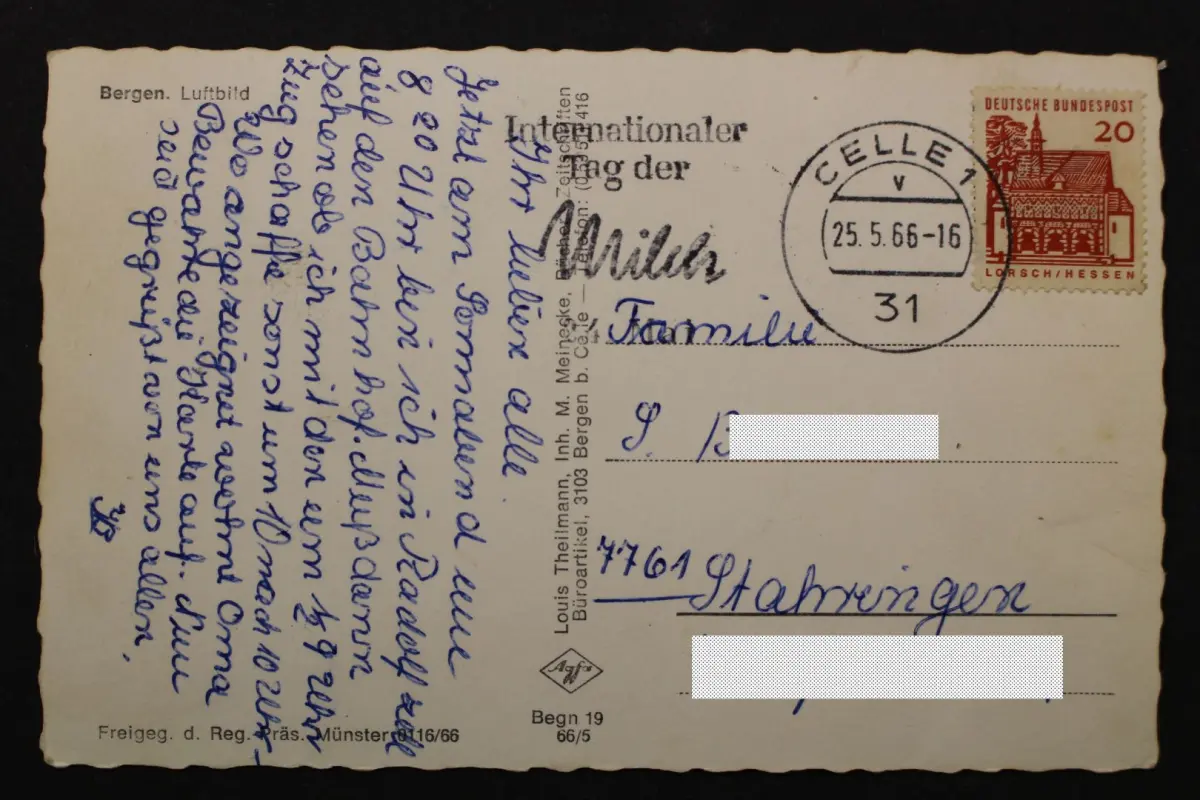 Bergen. Luftbild
Ihr lieben alle.
Jetzt am Sonnabend um
8 20 Uhr bin ich in Radolfzell
auf den Bahnhof. Muß dann
sehen ob ich mit den um ½ 9 Uhr
Zug schaffe sonst um 10 nach 10 Uhr
Wo angezeignet wohnt Oma
Bewahrt die Karte auf. Nun
seid gegrüßt von uns allen,
Freigeg. d. Reg. Präs. Münster 9116/66
Louis Theilmann, Inh. M. Meinecke, Bücher, Zeitschriften
Büroartikel, 3103 Bergen b. Celle — Telefon: 416
Agfa
Begn 19
66/5
Internationaler
Tag der
Milch
CELLE 1
v
25.5.66-16
31
DEUTSCHE BUNDESPOST
20
LORSCH/HESSEN
Familie
S. B
7761 Stahringen